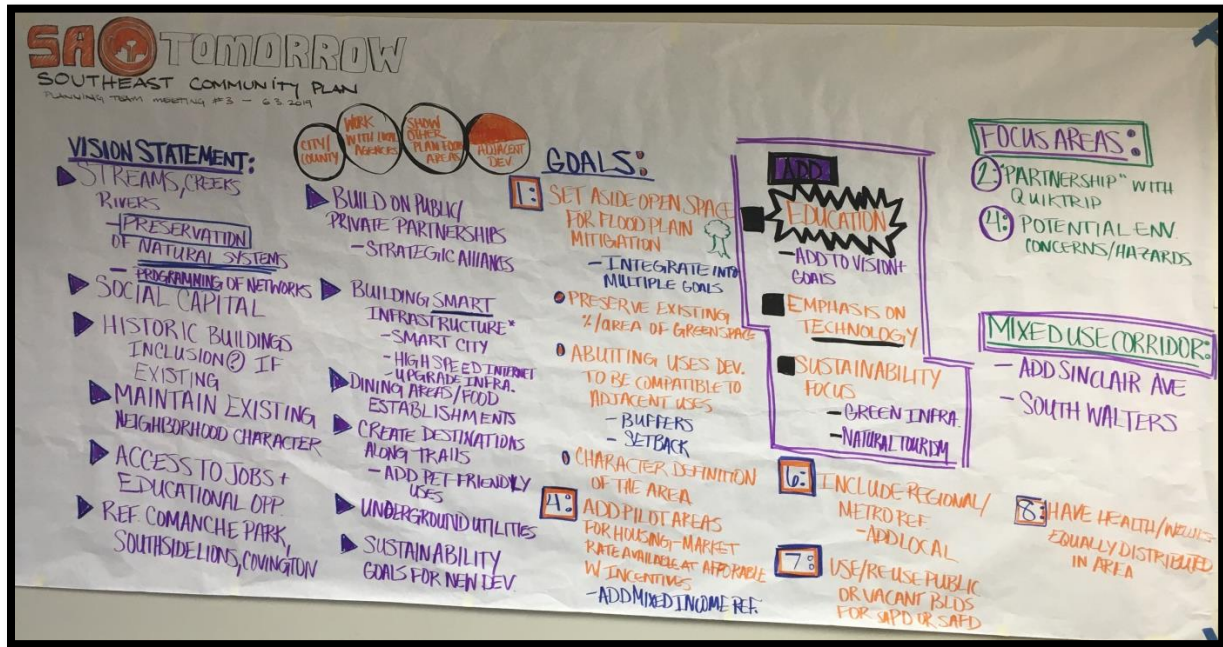 SA TOMORROW
SOUTHEAST COMMUNITY PLAN
PLANNING TEAM MEETING #3 – 6.3.2019
CITY/
COUNTY
WORK
WITH LOCAL
AGENCIES
SHOW
OTHER
PLAN FOCUS
AREAS
ADJACENT
DEV.
VISION STATEMENT:
STREAMS, CREEKS
RIVERS
– PRESERVATION
OF NATURAL SYSTEMS
– PROGRAMMING OF NETWORKS
SOCIAL CAPITAL
HISTORIC BUILDINGS
INCLUSION ? IF
EXISTING
MAINTAIN EXISTING
NEIGHBORHOOD CHARACTER
ACCESS TO JOBS +
EDUCATIONAL OPP.
REF. COMANCHE PARK,
SOUTHSIDE LIONS, COVINGTON
BUILD ON PUBLIC/
PRIVATE PARTNERSHIPS
– STRATEGIIC ALLIANCES
BUILDING SMART
INFRASTRUCTURE*
– SMART CITY
– HIGH SPEED INTERNET
– UPGRADE INFRA.
DINING AREAS/FOOD
ESTABLISHMENTS
CREATE DESTINATIONS
ALONG TRAILS
– ADD PET-FRIENDLY
USES
UNDERGROUND UTILITIES
SUSTAINABILITY
GOALS FOR NEW DEV.
GOALS:
1: SET ASIDE OPEN SPACE
FOR FLOOD PLAIN
MITIGATION
– INTEGRATE INTO
MULTIPLE GOALS
PRESERVE EXISTING
%/AREA OF GREENSPACE
ABUTTING USES DEV.
TO BE COMPATIBLE TO
ADJACENT USES
– BUFFERS
– SETBACK
CHARACTER DEFINITION
OF THE AREA
4: ADD PILOT AREAS
FOR HOUSING – MARKET
RATE AVAILABLE AT AFFORABLE
W INCENTIVES
– ADD MIXED INCOME REF.
ADD
EDUCATION
– ADD TO VISION +
GOALS
EMPHASIS ON
TECHNOLOGY
SUSTAINABILITY
FOCUS
– GREEN INFRA.
– NATURAL TOURISM
6: INCLUDE REGIONAL/
METRO REF
– ADD LOCAL
7: USE/RE-USE PUBLIC
OR VACANT BLDS
FOR SAPD OR SAFD
FOCUS AREAS:
2: "PARTNERSHIP" WITH
QUIKTRIP
4: POTENTIAL ENV.
CONCERNS/HAZARDS
MIXED USE CORRIDOR:
– ADD SINCLAIR AVE
– SOUTH WALTERS
8: HAVE HEALTH/
EQUALLY DISTRIBUTED
IN AREA